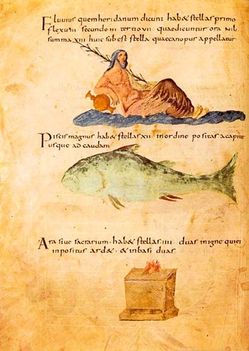 Fluuius quem heridanum dicunt hab& stellas primo
flexu iii secundo iii tertio vii quae dicuntur ora nil
summa xiii huic subest stella quae canopus appellatur
Piscis magnus hab& stellas xii in ordine positas a capite
usque ad caudam
Ara siue sacrarium hab& stellas iiii duas in igne qui ei
inpositus ard& & in basi duas